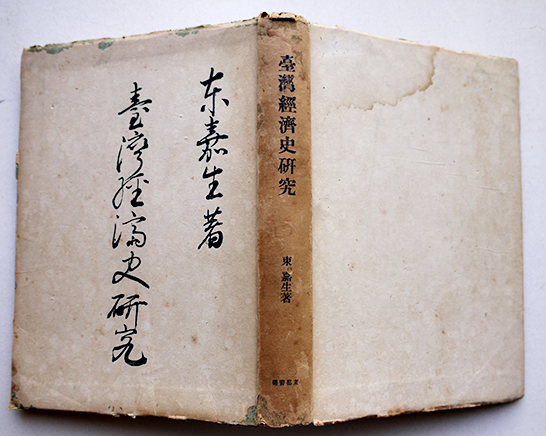 東嘉生著
臺灣經濟史研究
臺灣經濟史研究
東嘉生著